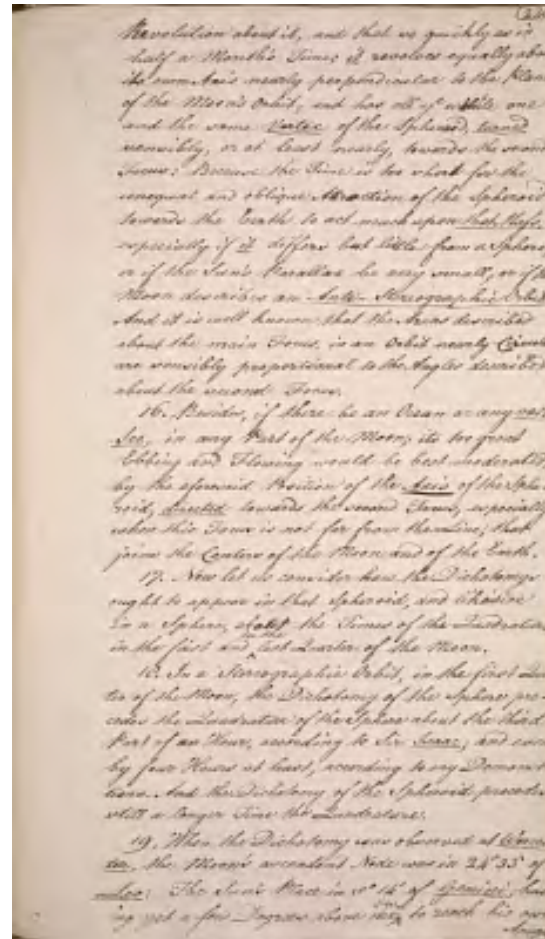 Revolution about it, and that we quickly as in
half a Month's Time; it revolves equally abo
its own Axis nearly perpendicular to the Plan
of the Moon's Orbit, and has all ye while one
and the same Vertex of the Spheroid, turned
sensibly, or at least nearly, towards the second
Focus: Because the Time is too short for the
unequal and oblique Attraction of the Spheroid
towards the Earth to act much upon that Mass,
especially if it differs but little from a Sphere,
or if the Sun's Parallax be very small, or if
Moon describes an Anti-Stereographic Orbit.
And it is well known that the Areas described
about the main Focus, in an Orbit nearly Circul
are sensibly proportional to the Angles described
about the second Focus.
16. Besides, if there be an Ocean or any
Sea, in any Part of the Moon; its too great
Ebbing and Flowing would be best moderated
by the aforesaid Position of the Axis of the Sphe
roid, directed towards the second Focus, especially
when this Focus is not far from the Line, that
joins the Centers of the Moon and of the Earth.
17. Now let us consider how the Dichotomy
ought to appear in that Spheroid, and likewise
in a Sphere, about the Times of the Quadratures
in the first and in the last Quarter of the Moon.
18. In a Stereographic Orbit, in the first Quar
ter of the Moon, the Dichotomy of the Sphere pre
cedes the Quadrature of the Sphere about the third
Part of an Hour, according to Sir Isaac; and
by four Hours at least, according to my Demonst
tions. And the Dichotomy of the Spheroid precedes
still a longer Time the Quadrature.
19. When the Dichotomy was observed at
the Moon's ascendant Node was in 24° 33' of
Leo: The Sun's Place in 14' of Gemini,
ing yet a few Degrees above to reach his own